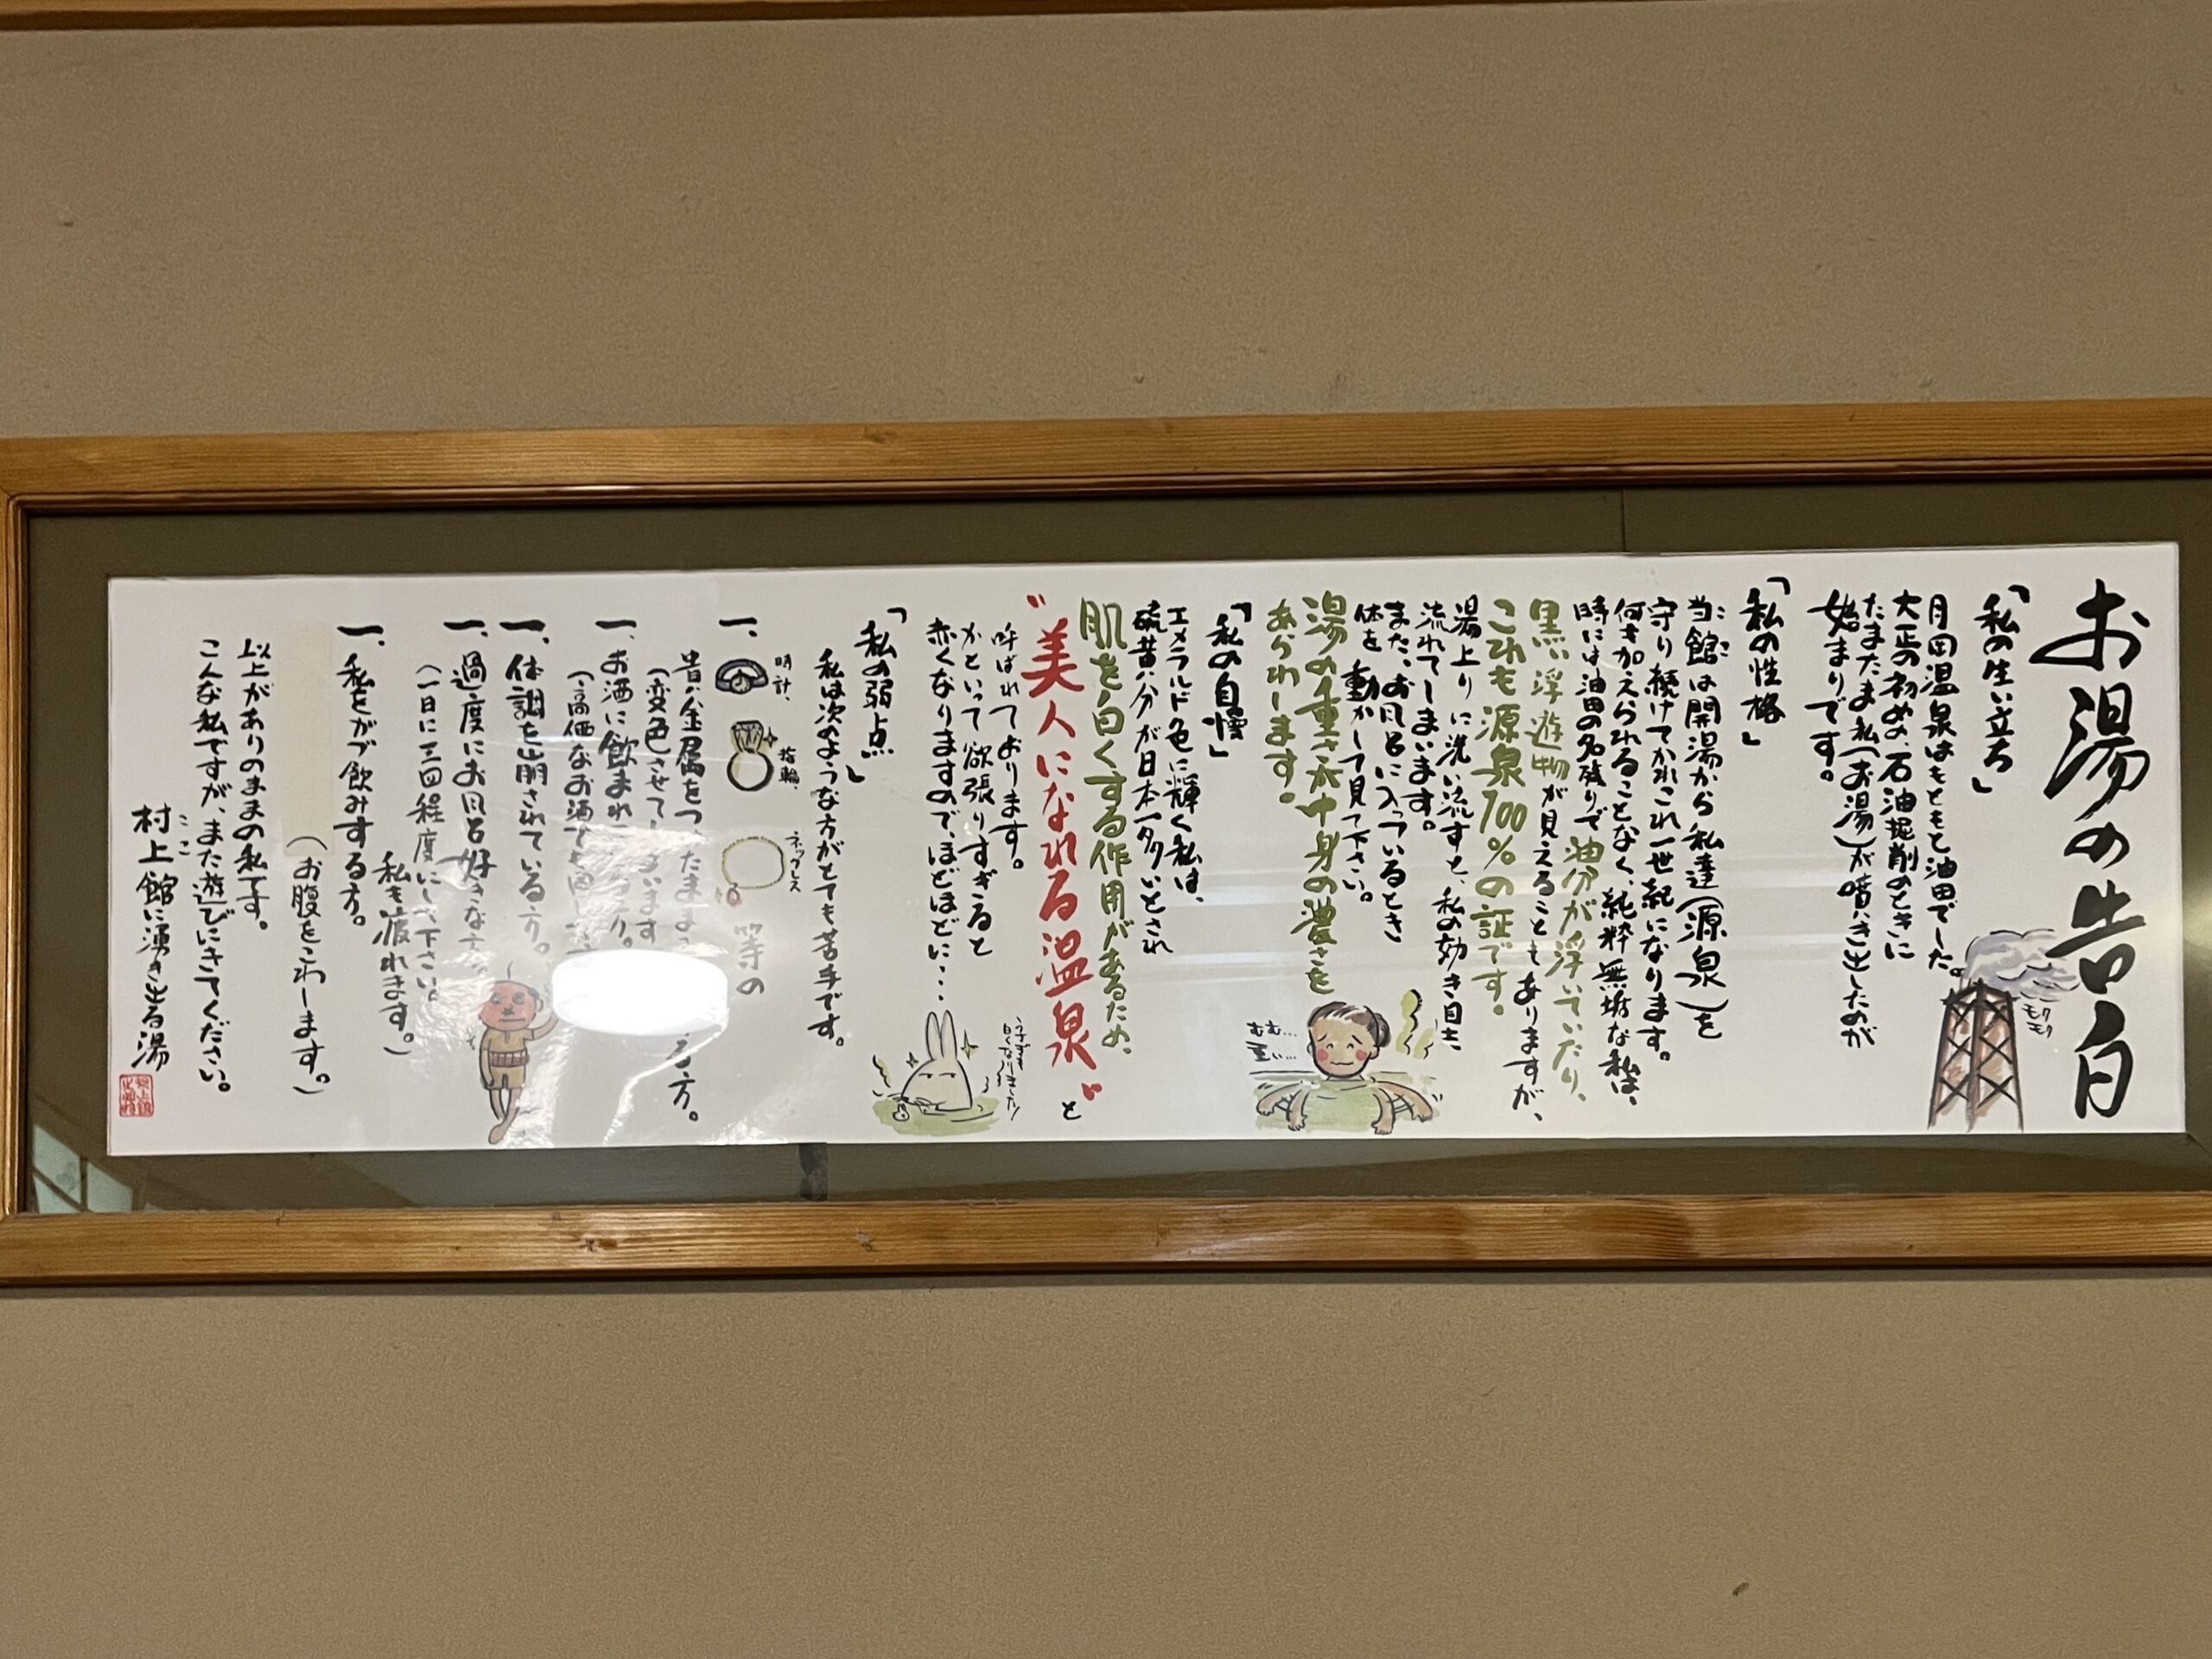 お湯の告白
「私の生い立ち」
月岡温泉はもともと油田でした。
大正の初めの、石油掘削のときに
たまたま私(お湯)が噴き出したのが
始まりです。
モクモク
「私の性格」
当館は開湯から私達(源泉)を
ここ
守り続けてかれこれ一世紀になります。
何も加えられることなく、純粋無垢な私は、
時には油田の名残りで油分が浮いていたり、
黒い浮遊物が見えることもありますが、
これも源泉100%の証です。
湯上りに洗い流すと、私の効き目も
流れてしまいます。
また、お風呂に入っているとき
体を動かして見て下さい。
湯の重さが中身の濃さを
あらわします。
むむ…
重い…
「私の自慢」
エメラルド色に輝く私は、
硫黄分が日本一多いとされ
肌を白くする作用があるため、
"美人になれる温泉"と
呼ばれております。
かといって欲張りすぎると
赤くなりますので、ほどほどに…
「私の弱点」
私は次のような方がとても苦手です。
一、時計、指輪、ネックレス等の
貴金属をつ たまま る方。
(変色させて います
一、お酒に飲まれ
(高価なお酒でも
一、体調を崩されている方。
一、過度にお風呂好きな方。
(一日に三回程度にして下さい。
私も疲れます。)
一、私をガブ飲みする方。
(お腹をこわします。)
以上がありのままの私です。
こんな私ですが、また遊びにきてください。
村上館に湧き出る湯
ここ